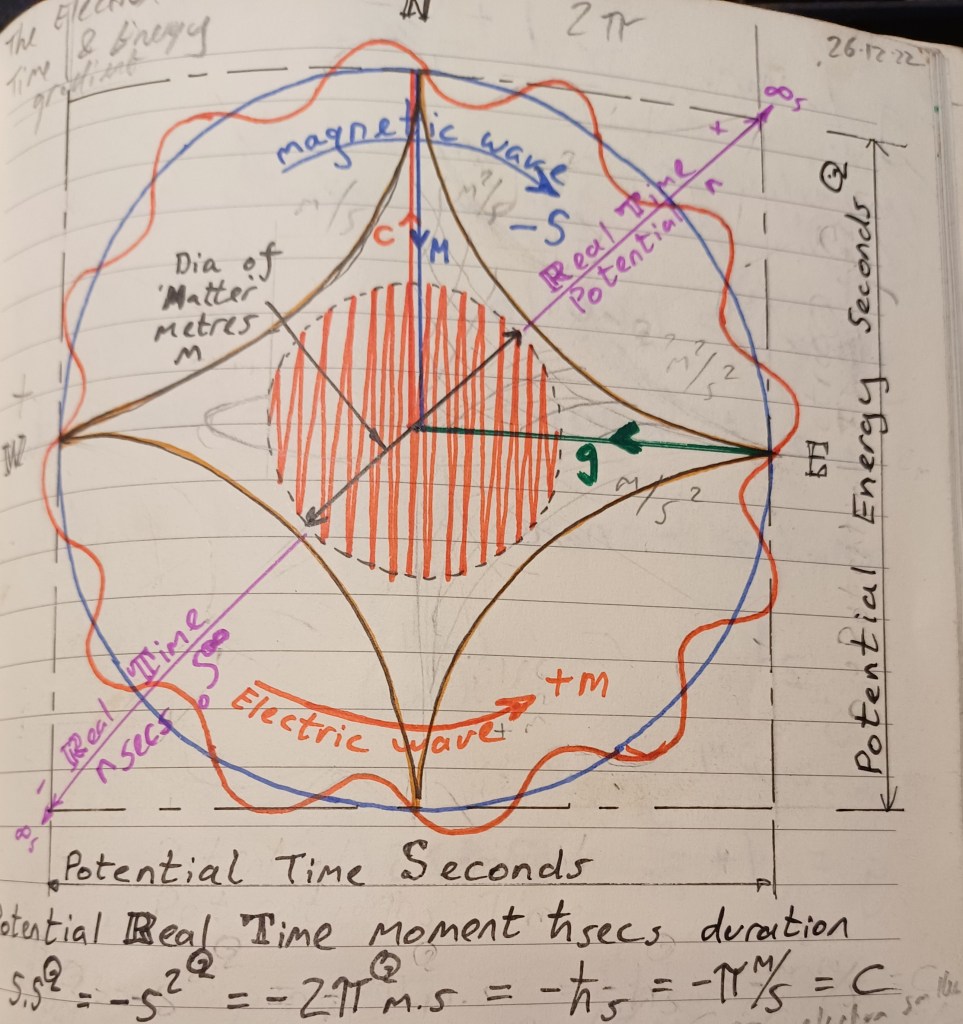 The Elect
Time & Energy
gradient
N
2π
26.12.22
∞s
magnetic wave
-S
m/s
m²/s
+
Real Time n
Potential
C
M
Dia of
'Matter'
metres
M
m²/s²
W
E
g
m/s²
Potential Energy Seconds Q
Real Time
nsecs
-
∞s
Electric wave
+m
Potential Time Seconds
otential Real Time moment ħsecs duration
s.s^Q = -s²^Q = -2π^Q m.s = -ħs = -π M/s = C